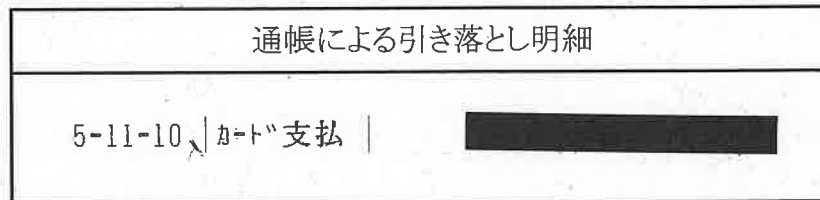 通帳による引き落とし明細
5-11-10 カード支払